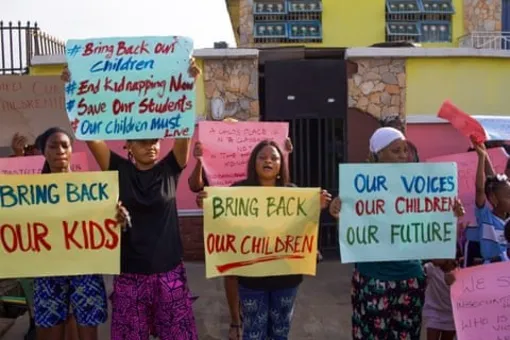 # Bring Back our
Children
# End Kidnapping Now
# Save Our Students
# Our Children Must
Live
BRING BACK
OUR KIDS
BRING BACK
OUR CHILDREN
OUR VOICES
OUR CHILDREN
OUR FUTURE
A CHILD'S PLACE IS
IN THE CLASSROOM
NOT
WE S
WHO IS